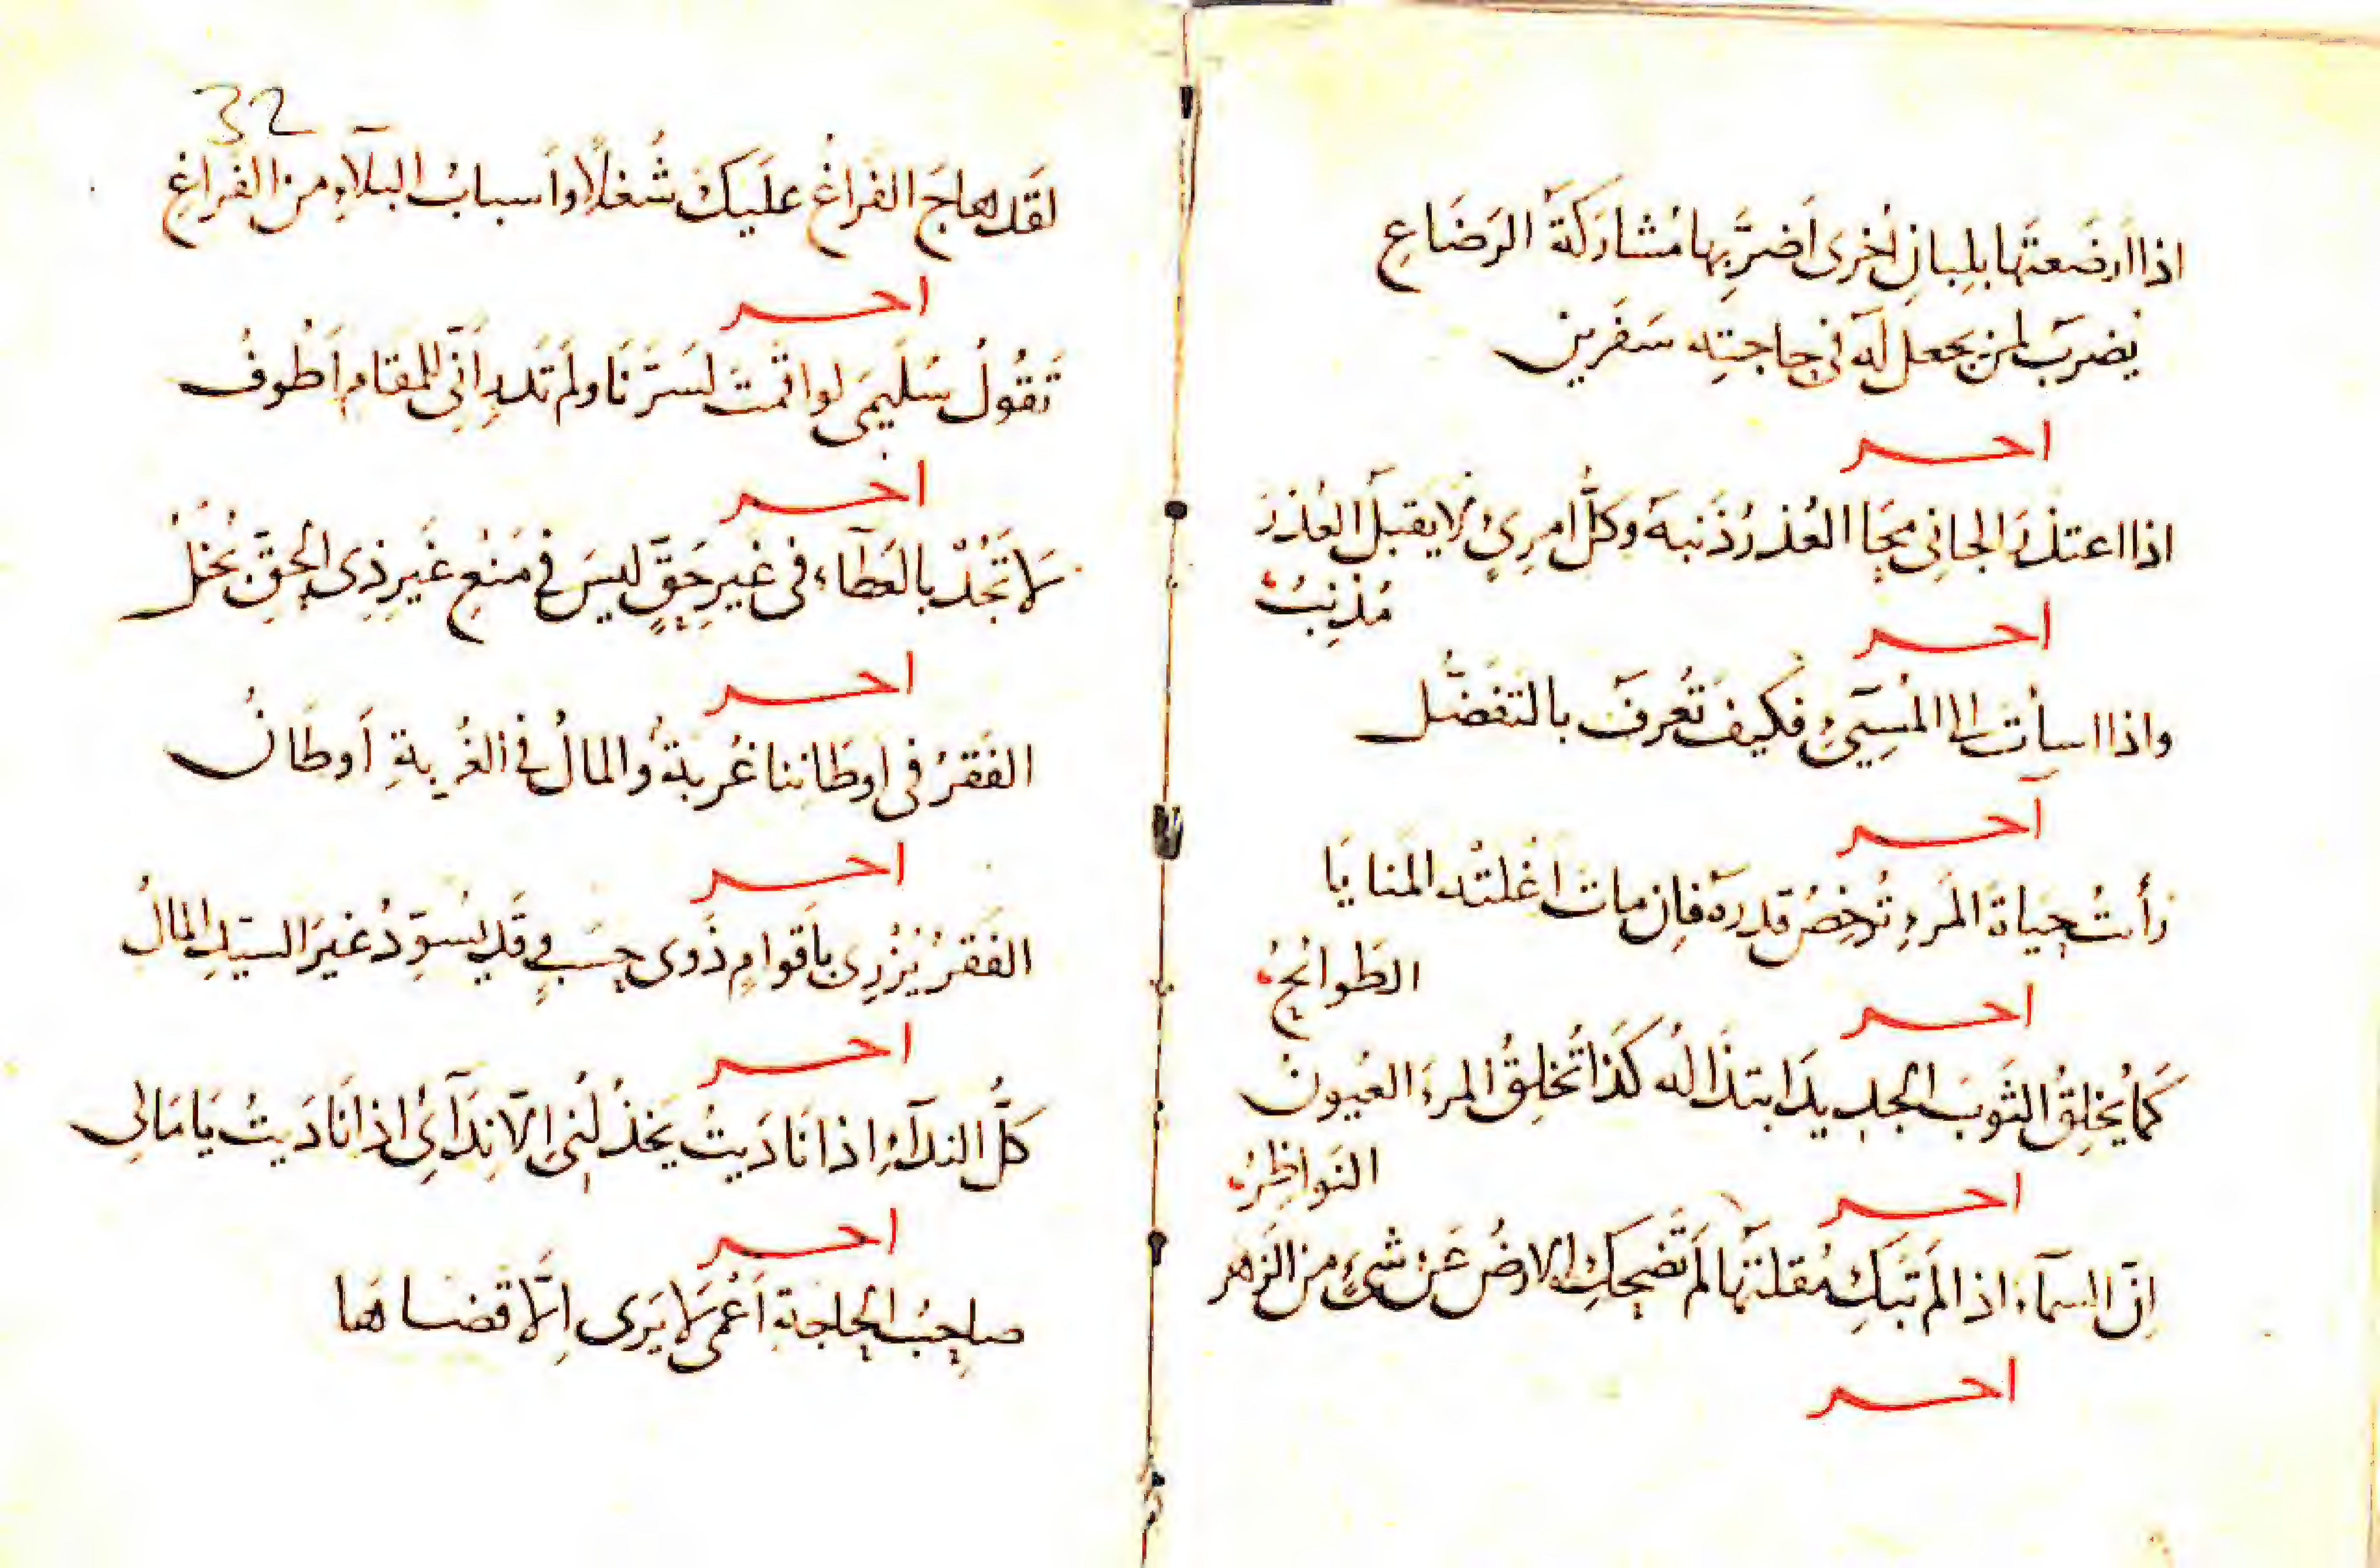 اذا ارضعتَها بلِبانِ اُخرى اَضرَّ بِها مُشاركَةُ الرَضَاعِ
يُضرَبُ لمن يجعل لَه فى حاجتِه سَفَرين
اخر
اذا اعتذرَ الجانِى مَحَا العُذرُ ذَنبَه وكلُّ امرِئٍ لا يقبلُ العُذرَ
مُذنِبُ
اخر
واذا اسأتَ الا المُسِيىءِ فكيفَ تُعرفَ بالتفضُّل
اخر
رأتُ حياةَ المرءِ تُرخِصُ قدرَه فاِن ماتَ اَغلتْه المَنايَا
الطَوائحُ
اخر
كمَا يُخلِقُ الثَوبَ الجديدَ ابتذالُه كَذَا تُخلِقُ المرءَ العُيونُ
النَواظِرُ
اخر
اِنّ السمآء اذا لَم تَبكِ مُقلتُها لَم تَضحكِ الارضُ عَن شىءٍ من الزهر
اخر
32
لقَد هاجَ الفراغُ علَيكَ شُغلًا واَسبابُ البَلآءِ من الفَراغِ
اخر
تَقُولُ سُلَيمَى لو اقمتَ لسَرَّنَا ولَم تَدرِ اَنّى للمقام اَطُوفُ
اخر
لَا تَجُدْ بالعَطآء فى غَيرِ حَقٍّ ليسَ فى مَنعِ غَيرِ ذِى الحقِّ بُخلُ
اخر
الفَقرُ فى اوطَانِنا غُربةٌ والمالُ فى الغُربةِ اَوطَانُ
اخر
الفَقرُ يُزْرِى باَقوامٍ ذَوى حسَبٍ وقَد يُسوِّدُ غيرَ السيّدِ المَالُ
اخر
كلُّ الندآءِ اذا نَادَيتُ يَخذُلُنِى اِلّا نِدَآئِى اذا نَادَيتُ يَا مَالِى
اخر
صاحبُ الحاجةِ اَعْمَى لَا يَرَى اِلَّا قضاها